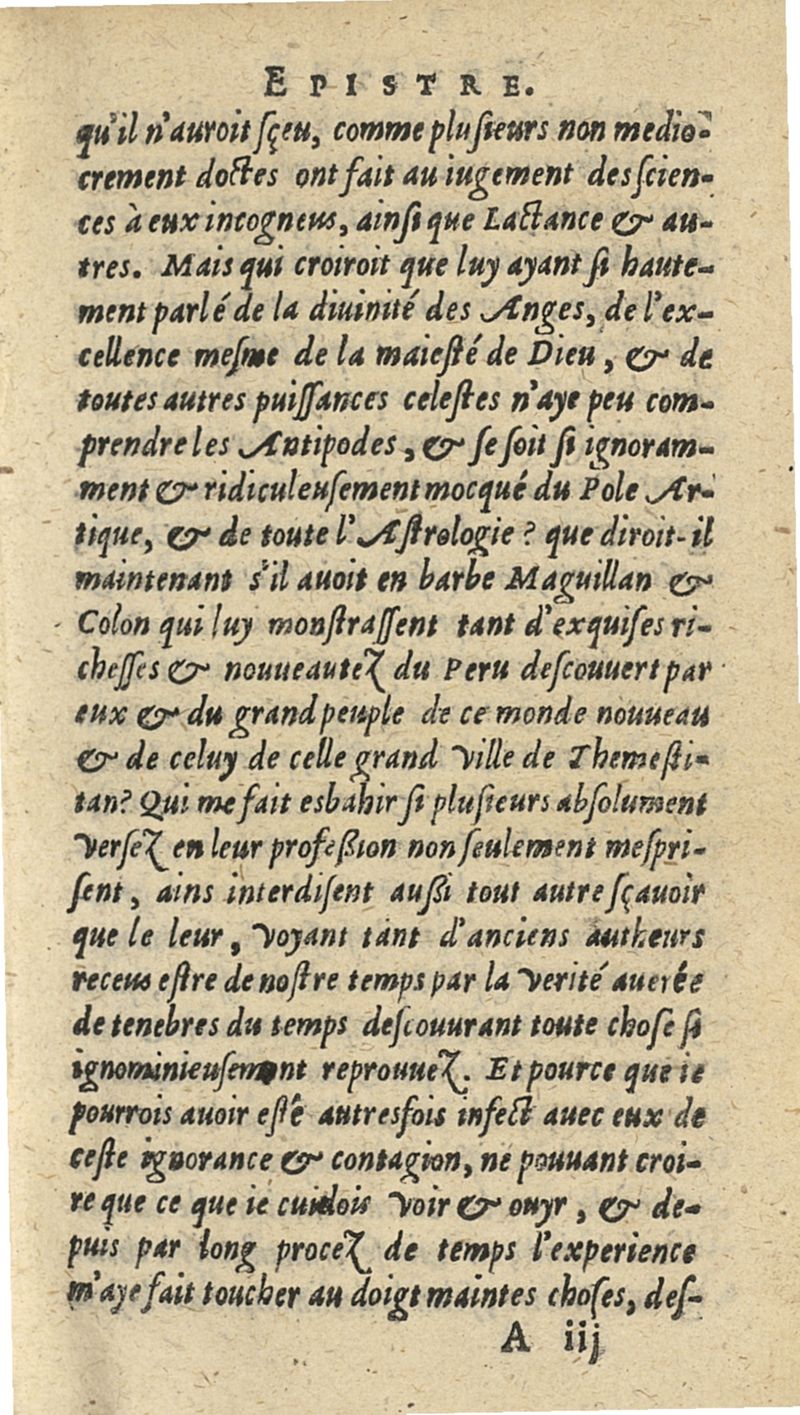 EPISTRE.
qu'il n'auroit ſçeu, comme pluſieurs non medio-
crement doctes ont fait au iugement des ſcien-
ces à eux incogneus, ainſi que Lactance & au-
tres. Mais qui croiroit que luy ayant ſi haute-
ment parlé de la diuinité des Anges, de l'ex-
cellence meſme de la maieſté de Dieu, & de
toutes autres puiſſances celeſtes n'aye peu com-
prendre les Antipodes, & ſe ſoit ſi ignoram-
ment & ridiculeuſement mocqué du Pole Ar-
tique, & de toute l'Aſtrologie? que diroit-il
maintenant s'il auoit en barbe Maguillan &
Colon qui luy monſtraſſent tant d'exquiſes ri-
cheſſes & nouueautez du Peru deſcouuert par
eux & du grand peuple de ce monde nouueau
& de celuy de celle grand ville de Themeſti-
tan? Qui me fait esbahir ſi pluſieurs abſolument
verſez en leur profeßion non ſeulement meſpri-
ſent, ains interdiſent außi tout autre ſçauoir
que le leur, voyant tant d'anciens autheurs
receus eſtre de noſtre temps par la verité auerée
de tenebres du temps deſcouurant toute choſe ſi
ignominieuſement reprouuez. Et pource que ie
pourrois auoir eſté autresfois infect auec eux de
ceſte ignorance & contagion, ne pouuant croi-
re que ce que ie cuidois voir & ouyr, & de-
puis par long procez de temps l'experience
m'aye fait toucher au doigt maintes choſes, deſ-
A iij